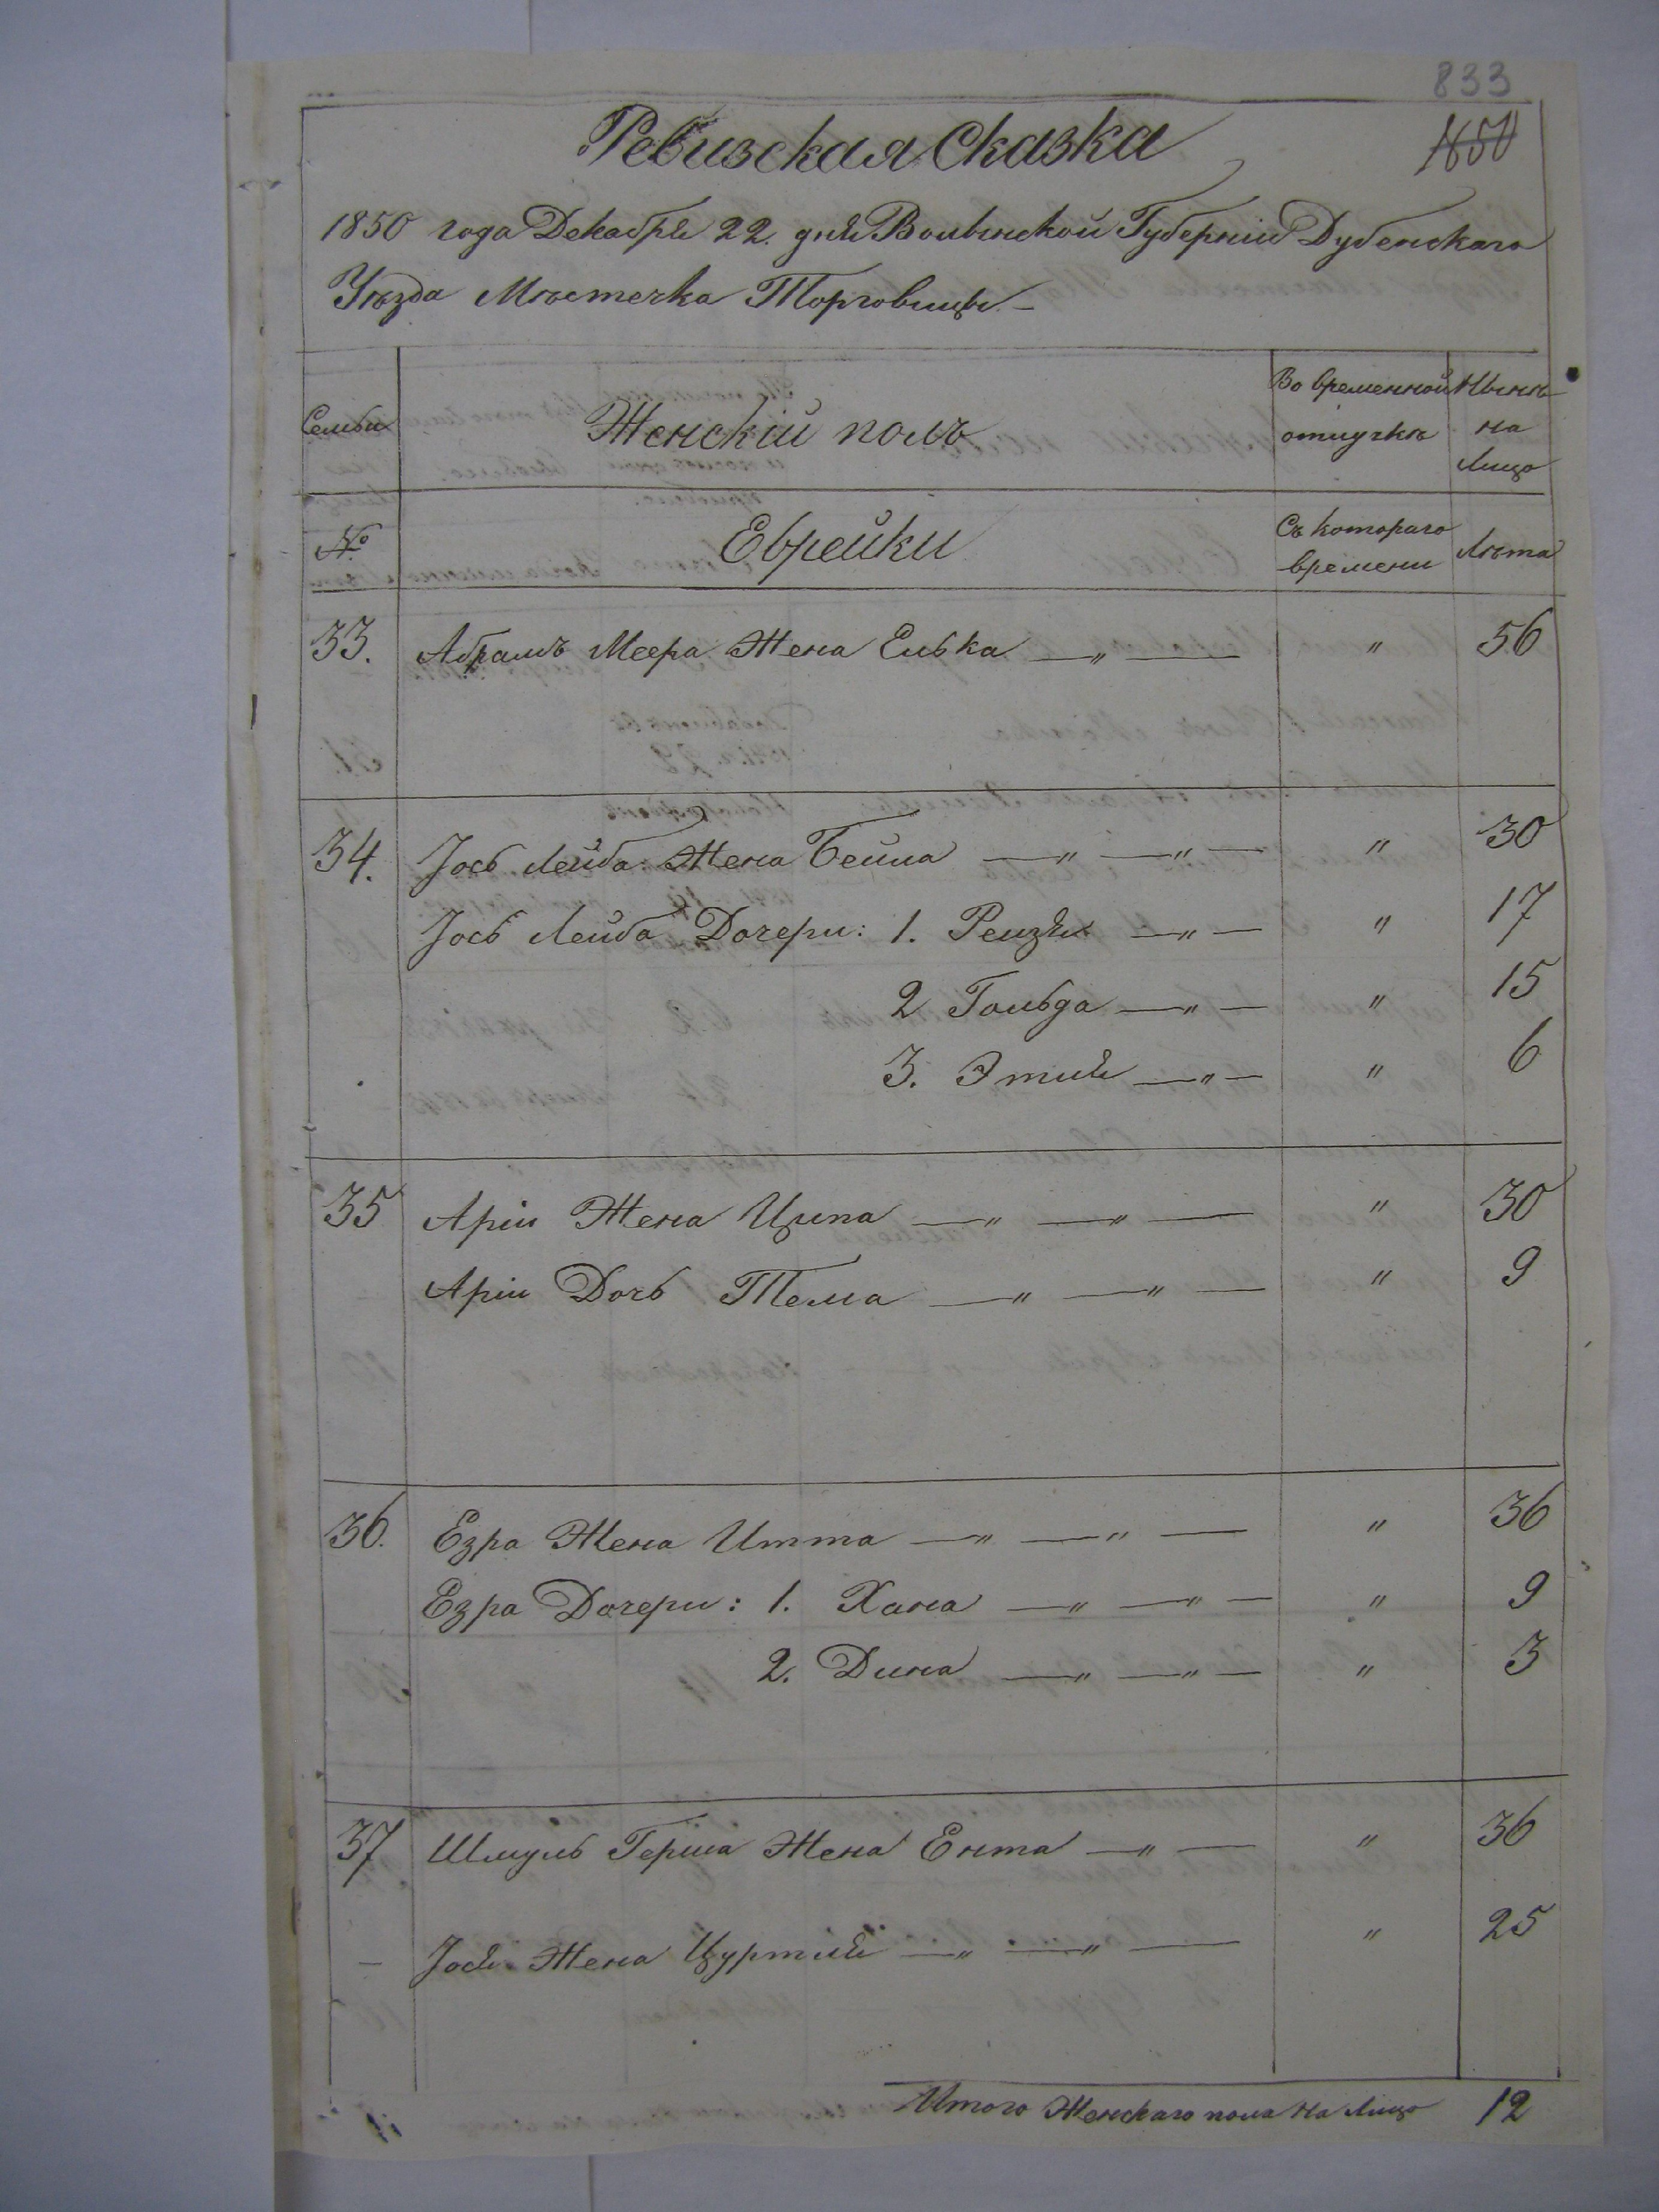 833
1650
Ревизская Сказка
1850 года Декабря 22. дня Волынской Губерніи Дубенскаго
Уѣзда Мѣстечка Торговицы. —
Семьи Женскій полъ Во временной отлучкѣ Нынѣ на Лицо
№ Еврейки Съ котораго времени Лѣта
33. Абрамъ Меера Жена Елька — „ — „ 56
34. Іось Лейба Жена Бейла — „ — „ — „ 30
Іось Лейба Дочери: 1. Рейзя — „ — „ 17
2 Гольда — „ — „ 15
3. Этля — „ — „ 6
35 Аріи Жена Ципа — „ — „ — „ 30
Аріи Дочь Тема — „ — „ — „ 9
36. Езра Жена Итта — „ — „ — „ 36
Езра Дочери: 1. Хана — „ — „ — „ 9
2. Дина — „ — „ — „ 3
37 Шмуль Герша Жена Ента — „ — „ 36
— Іося Жена Цуртля — „ — „ — „ 25
Итого Женскаго пола на Лицо 12